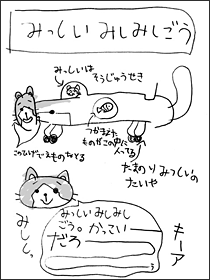 みっしい みしみしごう
みっしいは
そうじゅうせき
つかまえた
ものがこの中に
入ってる
このひげでえものをとる
たまのり みっしいの
たいや
みしとっ
みっしい みしみし
ごう。かってい
だろー
キーア